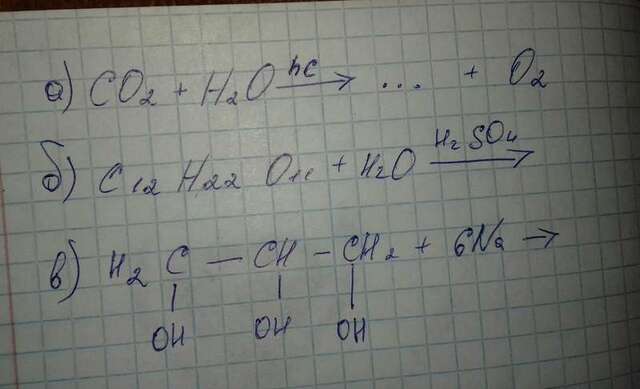 а) CO2 + H2O hс → ... + O2
б) C12 H22 O11 + H2O H2SO4 →
в) H2 C — CH — CH2 + 6Na →
OH OH OH